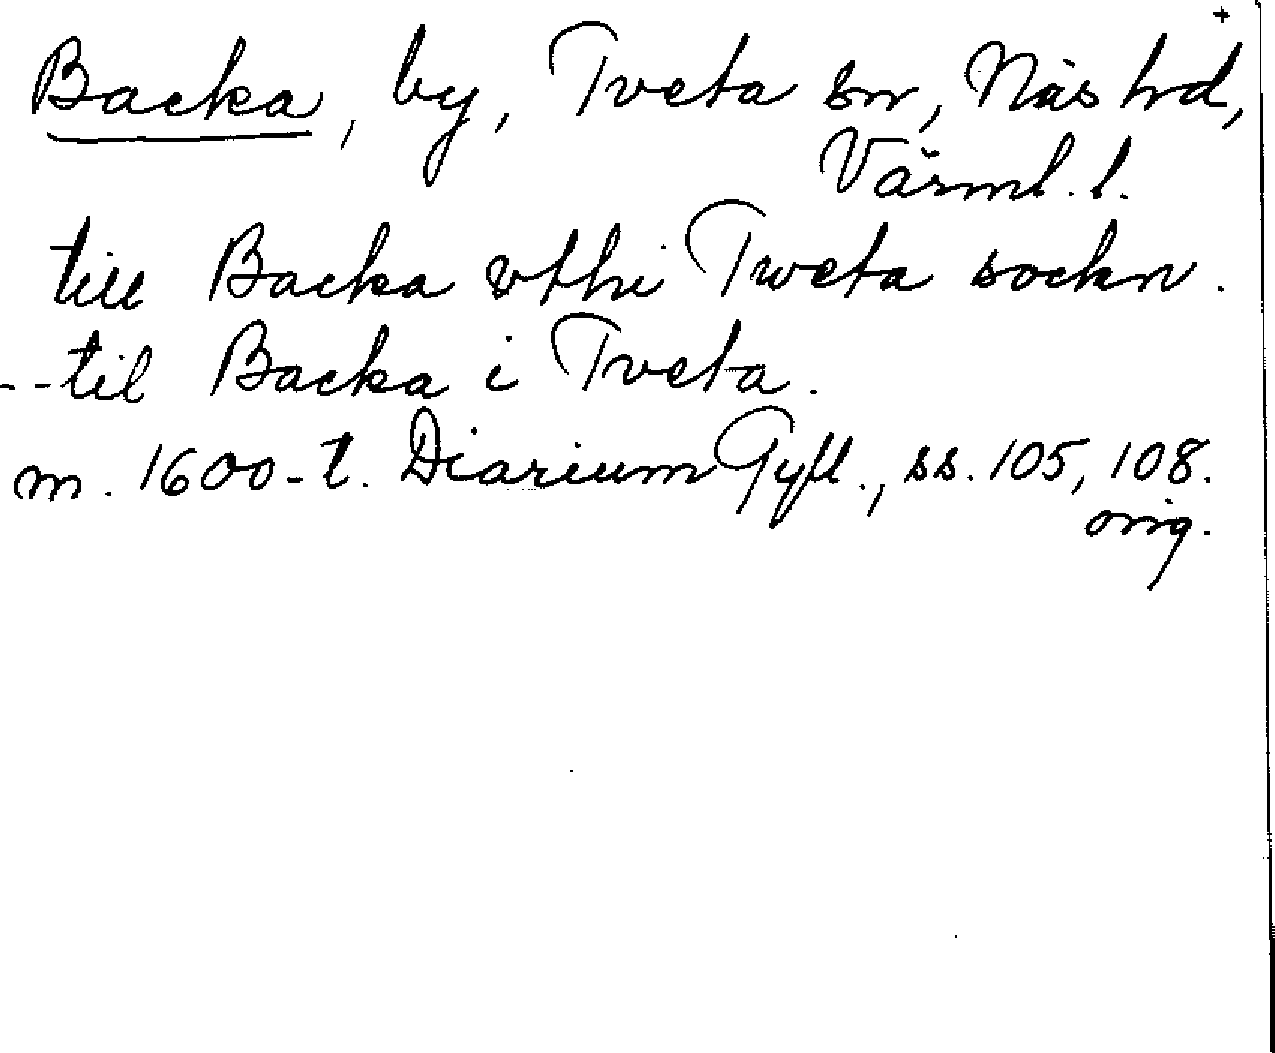 +
Backa, by, Tveta sn, Näs hd,
Värml. l.
till Backa vthi Tweta sockn.
--til Backa i Tveta.
m. 1600-t. Diarium Gyll., ss. 105, 108.
orig.